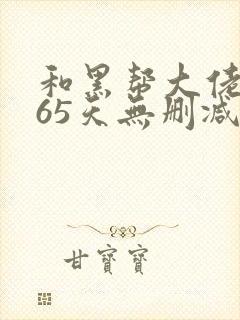 和黑帮大佬
65天無删减
甘寶寶